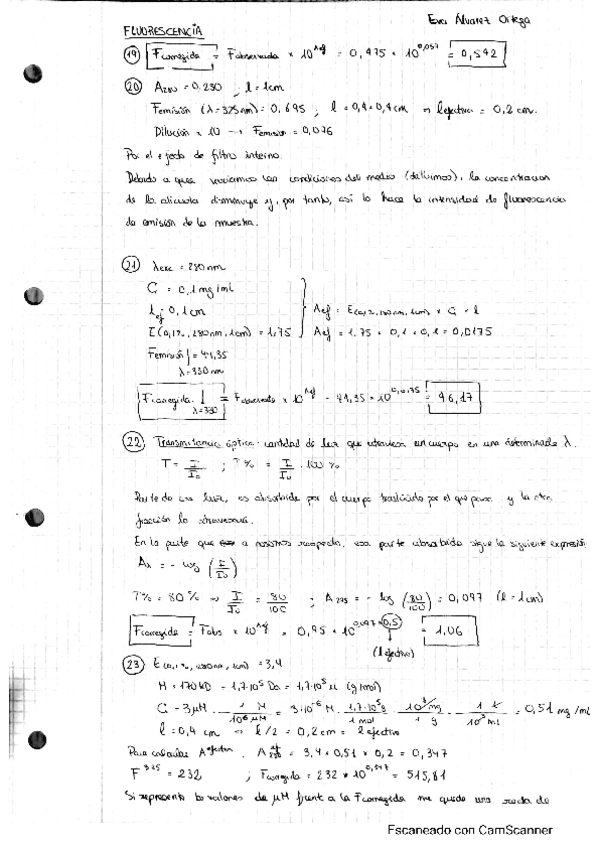 Eva Álvarez Ortega
FLUORESCENCIA
19 Fcorregida = Fobservada × 10^Aef = 0,475 × 10^0,057 = 0,542
20 A280 = 0,230 ; l = 1cm
Femisión (λ=325nm) = 0,695 ; l = 0,4×0,4cm ⇒ lefectiva = 0,2 cm.
Dilución × 10 → Femisión = 0,076
Por el efecto de filtro interno.
Debido a que variamos las condiciones del medio (diluimos), la concentracion
de la alicuota disminuye y, por tanto, así lo hace la intensidad de fluorescencia
de emisión de la muestra.
21 λexc = 280nm
C = 0,1 mg/ml
lef = 0,1cm
Aef = E(0,1%, 280nm, 1cm) × C × l
E(0,1%, 280nm, 1cm) = 1,75
Aef = 1.75 × 0,1 × 0,1 = 0,0175
Femisión] = 41,35
λ=330nm
Fcorregida] λ=330 = Fobservada × 10^Aef = 41,35 × 10^0,0175 = 46,17
22 Transmitancia óptica: cantidad de luz que atraviesa un cuerpo en una determinada λ.
T = I/I0 ; T% = I/I0 · 100%
Parte de esa luz, es absorbida por el cuerpo traslúcido por el que pasa y la otra
fracción lo atravesará.
En la parte que a nosotros respecta, esa parte absorbida sigue la siguiente expresión
Aλ = - log (I/I0)
T% = 80% ⇒ I/I0 = 80/100 ; A295 = - log (80/100) = 0,097 (l=1cm)
Fcorregida = Fobs × 10^Aef = 0,95 × 10^0,097×0,5 = 1,06
(l efectivo)
23 E(0,1%, 280nm, 1cm) = 3,4
M = 170kD = 1,7·10^5 Da = 1,7·10^5 M (g/mol)
C = 3µM · 1 M/10^6 µM = 3·10^-6 M · 1,7·10^5 g/1 mol · 10^3 mg/1 g · 1 l/10^3 ml = 0,51 mg/ml
l = 0,4 cm ⇒ l/2 = 0,2cm = l efectivo
Para calcular A efectiva : A ef 280 = 3,4 × 0,51 × 0,2 = 0,347
F^325 = 232 ; Fcorregida = 232 × 10^0,347 = 515,81
Si represento los valores de µM frente a la Fcorregida me queda una recta de
Escaneado con CamScanner